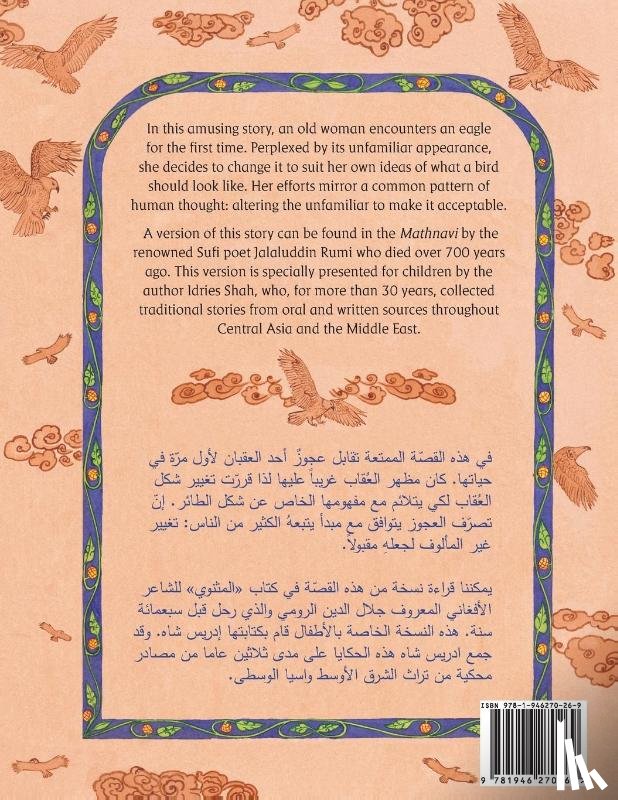 In this amusing story, an old woman encounters an eagle
for the first time. Perplexed by its unfamiliar appearance,
she decides to change it to suit her own ideas of what a bird
should look like. Her efforts mirror a common pattern of
human thought: altering the unfamiliar to make it acceptable.
A version of this story can be found in the Mathnavi by the
renowned Sufi poet Jalaluddin Rumi who died over 700 years
ago. This version is specially presented for children by the
author Idries Shah, who, for more than 30 years, collected
traditional stories from oral and written sources throughout
Central Asia and the Middle East.
في هذه القصّة الممتعة تقابل عجوزٌ أحد العقبان لأول مرّة في
حياتها. كان مظهر العُقاب غريباً عليها لذا قررّت تغيير شكل
العُقاب لكي يتلائم مع مفهومها الخاص عن شكل الطائر. إنّ
تصرّف العجوز يتوافق مع مبدأ يتبعهُ الكثير من الناس: تغيير
غير المألوف لجعلهِ مقبولاً.
يمكننا قراءة نسخة من هذه القصّة في كتاب «المثنوي» للشاعر
الأفغاني المعروف جلال الدين الرومي والذي رحل قبل سبعمائة
سنة. هذه النسخة الخاصة بالأطفال قام بكتابتها إدريس شاه. وقد
جمع ادريس شاه هذه الحكايا على مدى ثلاثين عاما من مصادر
محكية من تراث الشرق الأوسط واسيا الوسطى.
ISBN 978-1-946270-26-9
9 781946 270